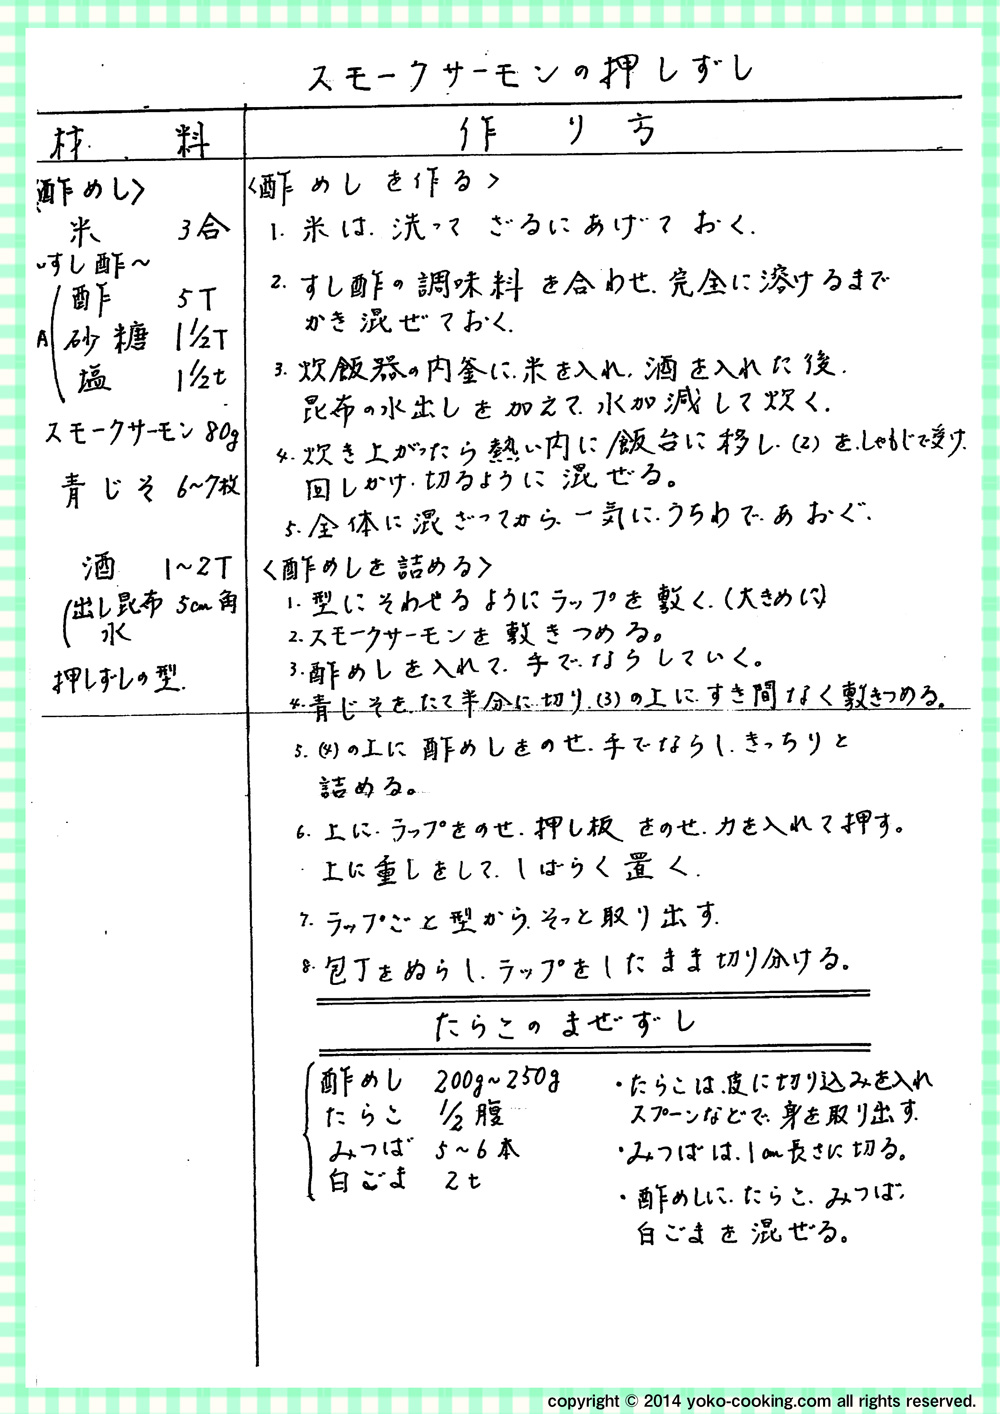 スモークサーモンの押しずし
材料
作り方
〈酢めし〉
米 3合
〜すし酢〜
A
酢 5T
砂糖 1 1/2T
塩 1 1/2t
スモークサーモン 80g
青じそ 6~7枚
酒 1~2T
出し昆布 5cm角
水
押しずしの型
〈酢めしを作る〉
1. 米は、洗って ざるにあげて おく.
2. すし酢の調味料を合わせ、完全に溶けるまで
かき混ぜておく.
3. 炊飯器の内釜に、米を入れ、酒を入れた後、
昆布の水出しを加えて、水加減して炊く.
4. 炊き上がったら熱い内に飯台に移し、(2)を、しゃもじで受け、
回しかけ、切るように混ぜる。
5. 全体に混ざってから、一気に、うちわで、あおぐ.
〈酢めしを詰める〉
1. 型にそわせるようにラップを敷く.(大きめに)
2. スモークサーモンを敷きつめる。
3. 酢めしを入れて、手で、ならしていく。
4. 青じそを、たて半分に切り、(3)の上に、すき間なく敷きつめる。
5. (4)の上に酢めしをのせ、手でならし、きっちりと
詰める。
6. 上に、ラップをのせ、押し板をのせ、力を入れて押す。
上に重しをして、しばらく置く.
7. ラップごと型から、そっと取り出す.
8. 包丁をぬらし、ラップをしたまま切り分ける。
たらこのまぜずし
酢めし 200g~250g
たらこ 1/2腹
みつば 5~6本
白ごま 2t
・たらこは、皮に切り込みを入れ
スプーンなどで、身を取り出す.
・みつばは、1cm長さに切る。
・酢めしに、たらこ、みつば、
白ごまを混ぜる。
copyright © 2014 yoko-cooking.com all rights reserved.